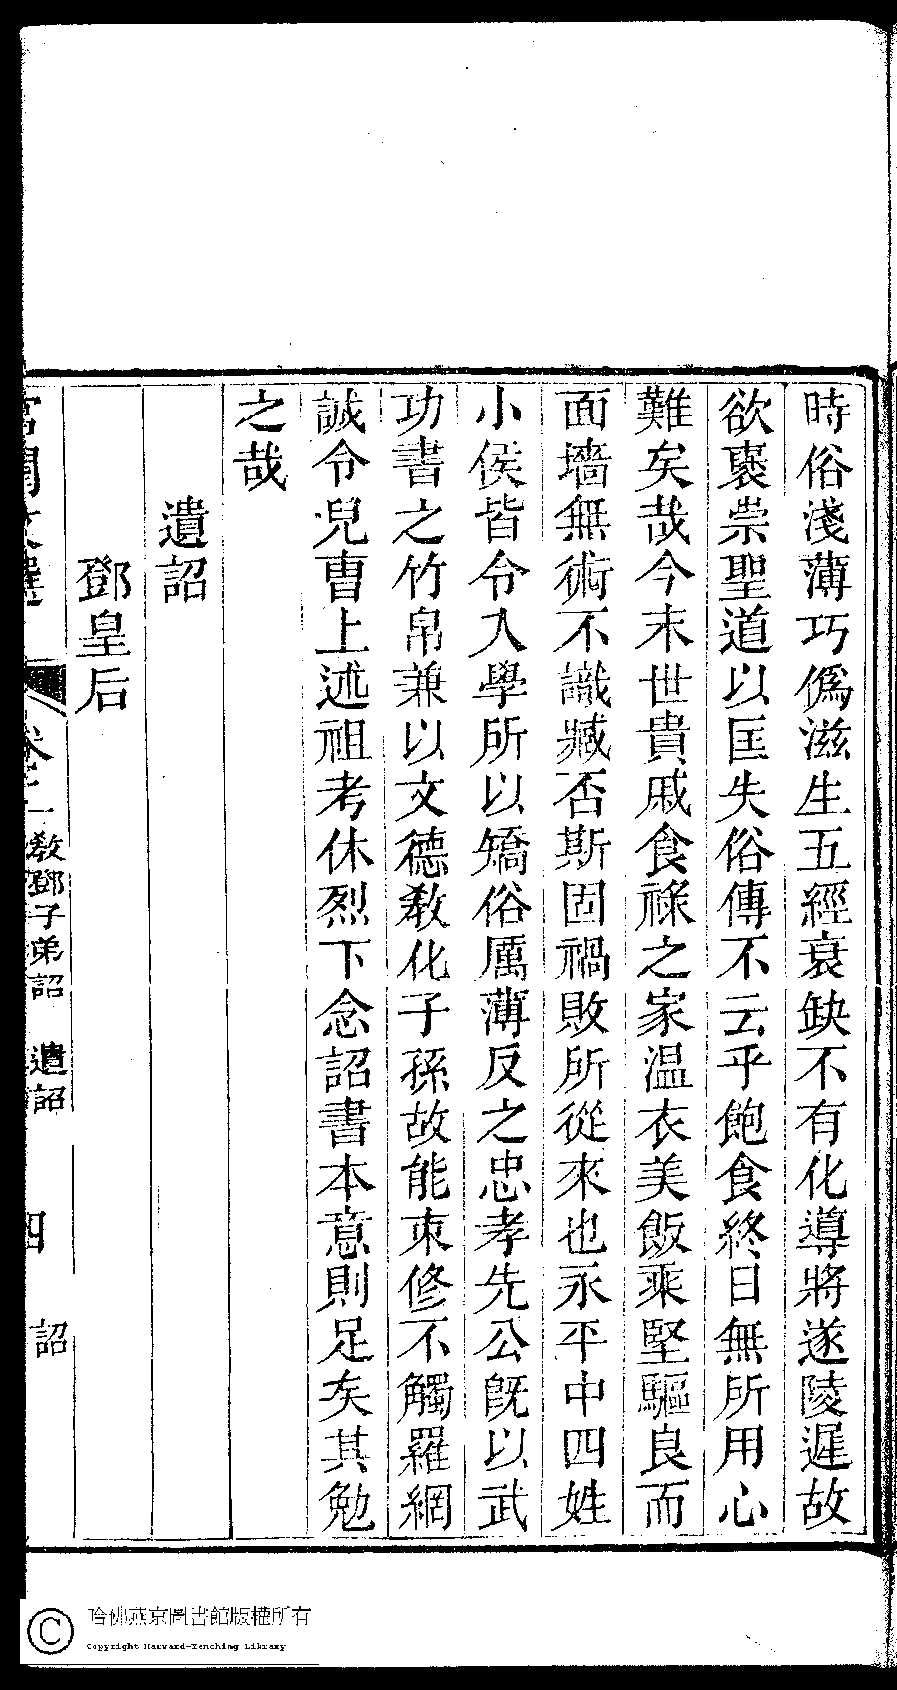 時俗淺薄巧僞滋生五經衰缺不有化導將遂陵遲故
欲襃崇聖道以匡失俗傳不云乎飽食終日無所用心
難矣哉今末世貴戚食祿之家温衣美飯乘堅驅良而
面墻無術不識臧否斯固禍敗所從來也永平中四姓
小侯皆令入學所以矯俗厲薄反之忠孝先公旣以武
功書之竹帛兼以文德敎化子孫故能束修不觸羅網
誠令兒曹上述祖考休烈下念詔書本意則足矣其勉
之哉
遺詔
鄧皇后
宮閨文選 卷二 敎鄧子弟詔 遺詔 四 詔
哈佛燕京圖書館版權所有
Copyright Harvard-Yenching Library